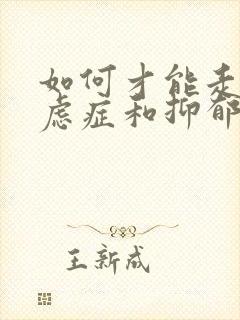 如何才能走
虑症和抑郁
王新成